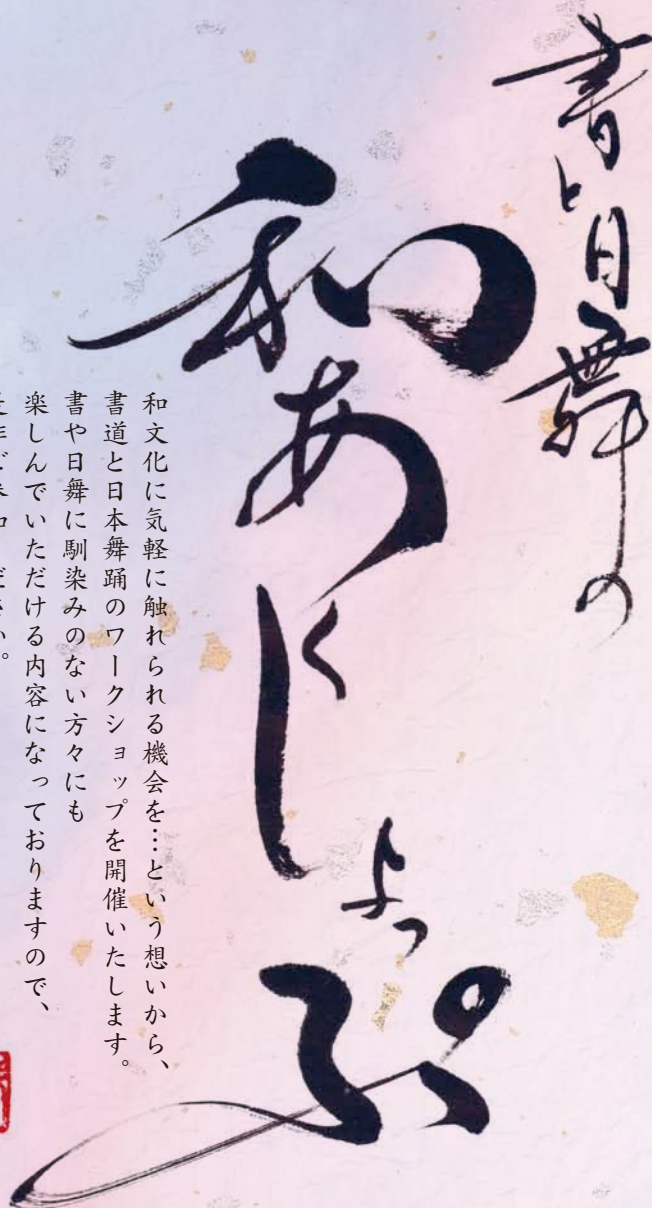 書と日舞の
和あくしょっぷ
和文化に気軽に触れられる機会を…という想いから、
書道と日本舞踊のワークショップを開催いたします。
書や日舞に馴染みのない方々にも
楽しんでいただける内容になっておりますので、
是非ご参加ください。